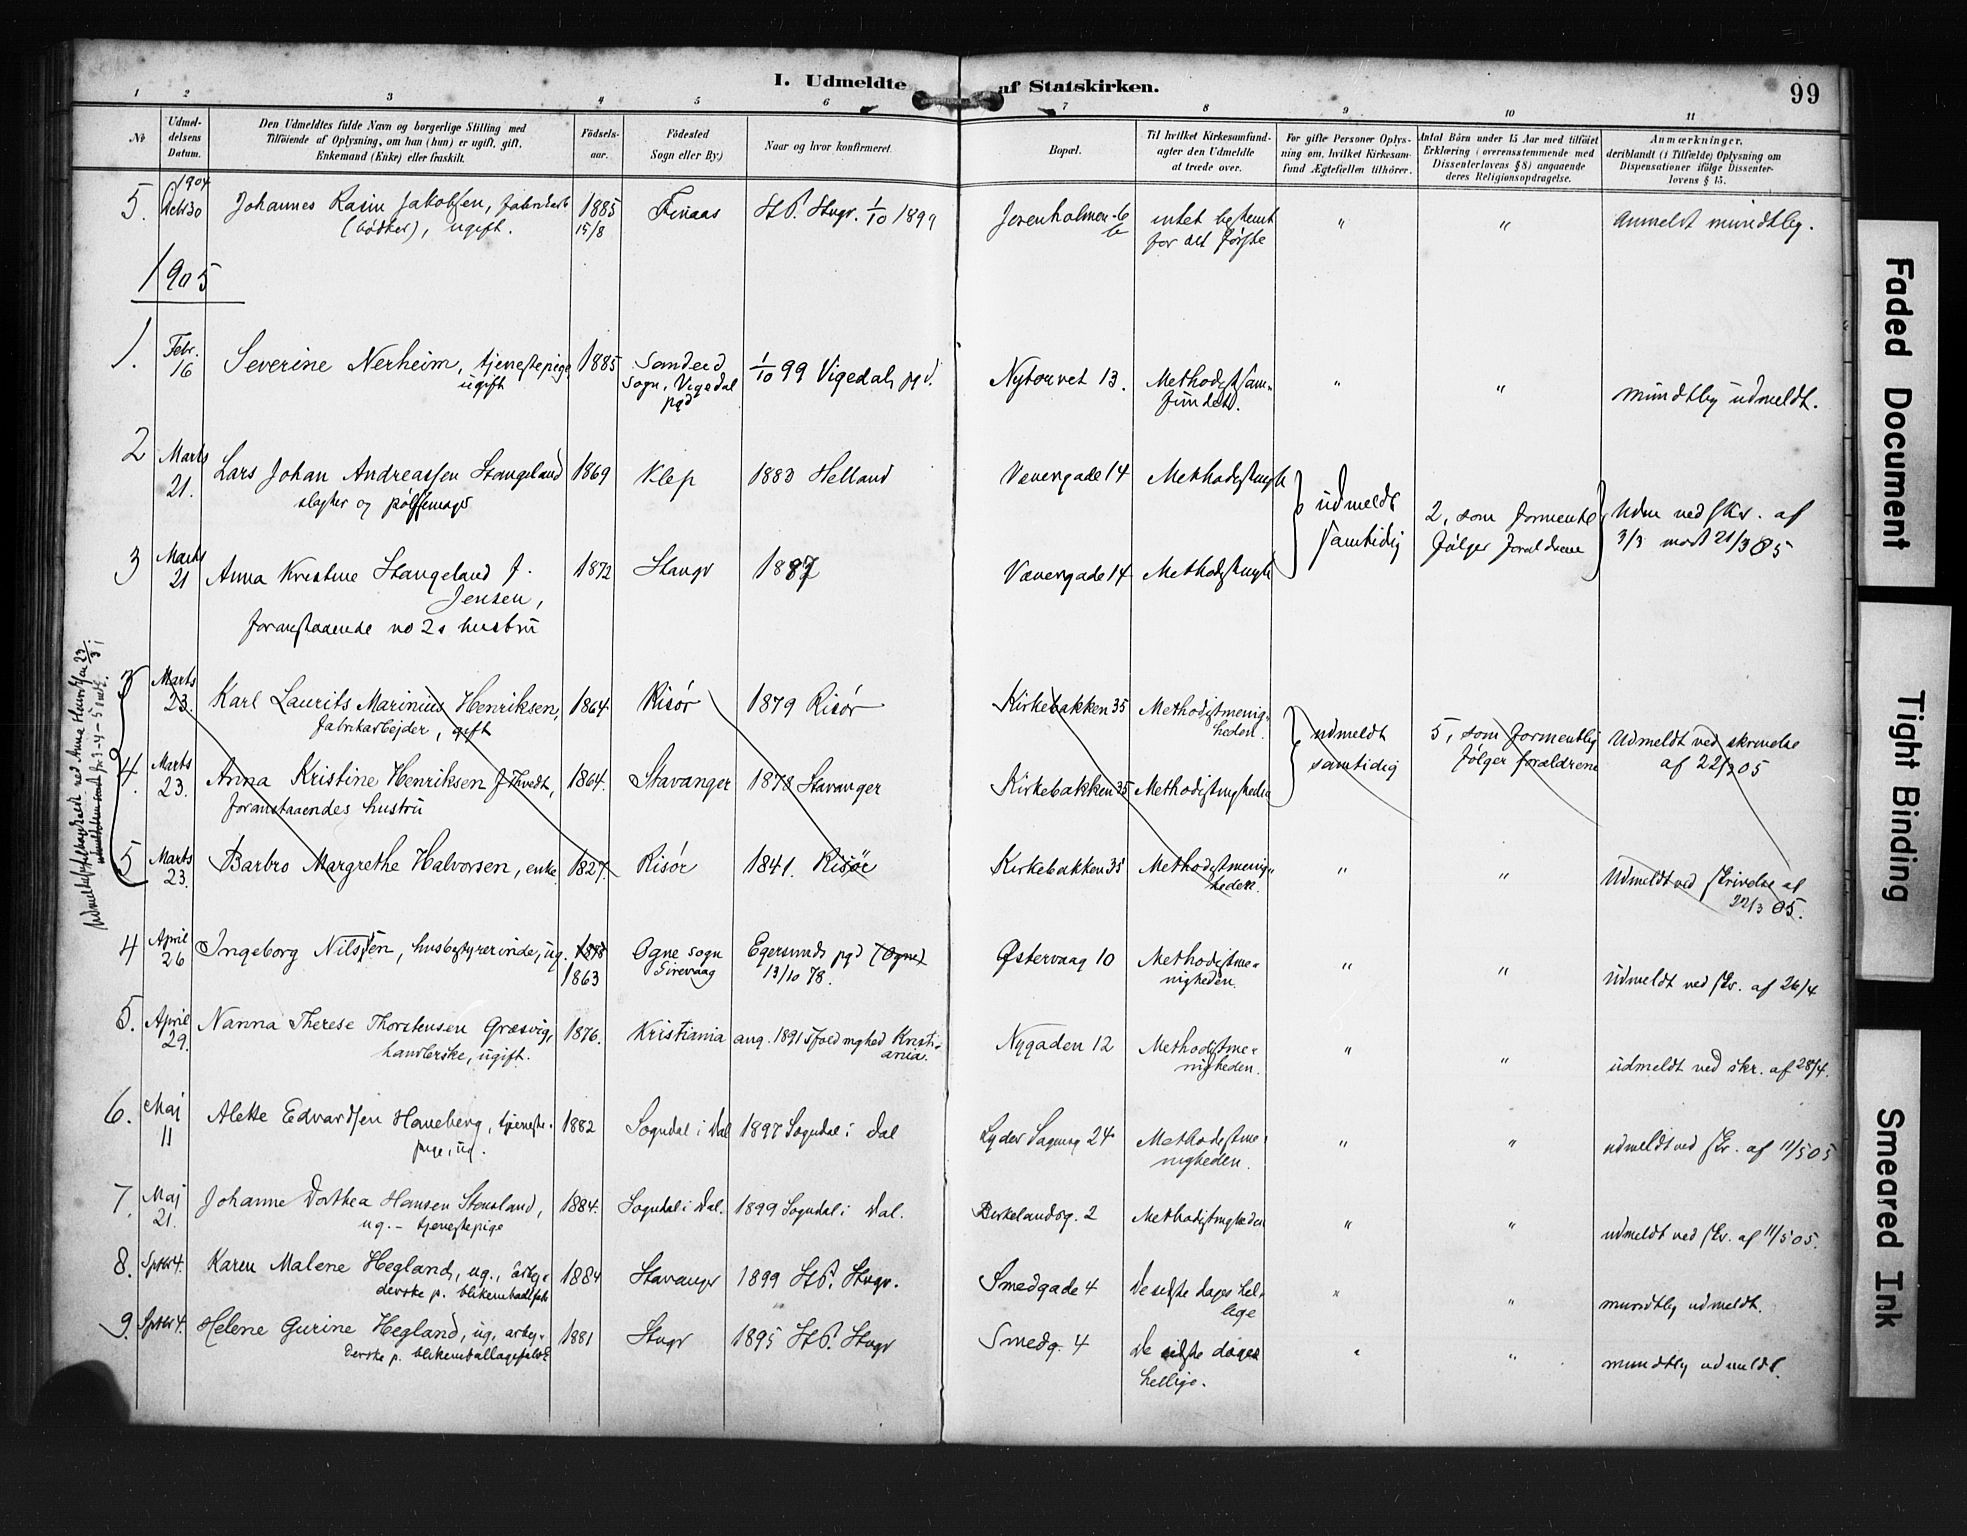 I. Udmeldte af Statskirken.
99
1 2 3 4 5 6 7 8 9 10 11
No
Udmel-
delsens
Datum.
Den Udmeldtes fulde Navn og borgerlige Stilling med
Tilføiende af Oplysning, om han (hun) er ugift, gift,
Enkemand (Enke) eller fraskilt.
Fødsels-
aar.
Fødested
Sogn eller By)
Naar og hvor konfirmeret.
Bopæl.
Til hvilket Kirkesamfund
agter den Udmeldte
at træde over.
For gifte Personer Oplys-
ning om, hvilket Kirkesam-
fund Ægtefællen tilhører.
Antal Børn under 15 Aar med tilføiet
Erklæring (overensstemmende med
Dissenterlovens § 8) angaaende
deres Religionsopdragelse.
Anmærkninger,
deriblandt (i Tilfælde) Oplysning om
Dispensationer ifølge Dissenter-
lovens § 15.
5. 1904 30 Johannes Rasin Jakobsen, 1885 Finaas St P. Stvgr. 1/10 1899 Jorenholmen intet bestemt " " anmeldt mundtlig.
(bødker), ugift. 15/8 for det første
1905
1. Febr. 16 Severine Nerheim, tjenestepige, 1885 Sandeid 1/10 99 Vigedals pgd. Nytorvet 13. Methodistsam- " " mundtlig udmeldt.
ugift sogn, Vigedal fundet.
pgd
2 Marts 21. Lars Johan Andreassen Stangeland 1869 Klep 1883 Helland Vævergade 14 Methodistmgh
slagter og pølsemager
udmeldt samtidig
2, som formentl følger forældrene
Udm ved skr. af 3/3 modt 21/3 05
3 Marts 21 Anna Kristine Stangeland f. 1872 Stavgr 1887 Vævergade 14 Methodistmgh
Jensen,
foranstaaende no 2s hustru
3 Marts 23. Karl Laurits Marinius Henriksen, 1864 Risør 1879 Risør Kirkebakken 35 Methodistmenig-
fabrikarbejder, gift heden.
udmeldt samtidig
5, som formentlig følger forældrene
Udmeldt ved skrivelse af 22/3 05
4. Marts 23. Anna Kristine Henriksen f. Thvedt, 1864. Stavanger 1878 Stavanger Kirkebakken 35 Methodistmgheden
foranstaaendes hustru
5 Marts 23. Barbro Margrethe Halvorsen, enke 1827. Risør 1841. Risør Kirkebakken 35 Methodistmenig- " " Udmeldt ved skrivelse af
heden. 22/3 05.
4 April 26 Ingeborg Nilsen, husbestyrerinde, ug. 1863 Ogne sogn Egersunds pgd (Ogne) Østervaag 10 Methodistme- " " udmeldt ved skr. af 26/4
Sirevaag 13/10 78. nigheden.
5. April 29. Nanna Therese Thorstensen Græsvig, 1876. Kristiania aug. 1891 mghed Kristi- Nygaden 12 Methodistme- " " udmeldt ved skr. af 28/4.
handlerske, ugift. ania. nigheden.
6. Maj 11 Alette Edvardsen Haneberg, tjeneste- 1882 Sogndal i Dal 1897 Sogndal i Dal Lyder Sagensg 24 Methodistme- " " udmeldt ved skr. af 11/5 05
pige, ug. nigheden.
7. Maj 21. Johanne Dorthea Hansen Stensland, 1884. Sogndal i Dal. 1899 Sogndal i Dal. Birkelandsg. 2 Methodistmgheden " " udmeldt ved skr. af 11/5 05.
ug. - tjenestepige
8. Sptbr 4. Karen Malene Hegland, ug., arbej- 1884 Stavanger 1899 St P. Stvgr. Smedgade 4 De sidste dages hel- " " mundtlig udmeldt.
derske p. lige
9. Sptbr 4. Helene Gurine Hegland, ug. arbej- 1881 Stvgr 1895 St P. Stvgr Smedg. 4 De sidste dages " " mundtlig udmeldt.
derske p. blikemballagefabr hellige.
Faded Document
Tight Binding
Smeared Ink